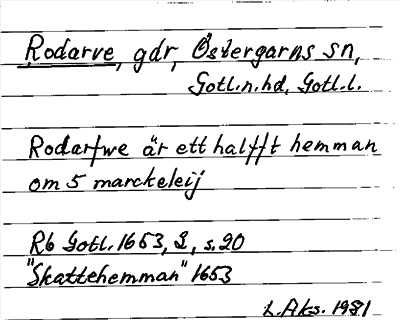 Rodarve, gdr, Östergarns sn,
Gotl.n.hd, Gotl.l.
Rodarfwe är ett halfft hemman
om 5 marckeleij
Rb Gotl. 1653, s.20
"Skattehemman" 1653
L.Aks. 1981